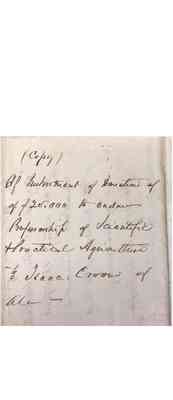 (Copy)
Of Instrument of Donation of
of $25.000 to endow
Professorship of Scientific
& Practical Agriculture
Isaac Crow of
Ala —